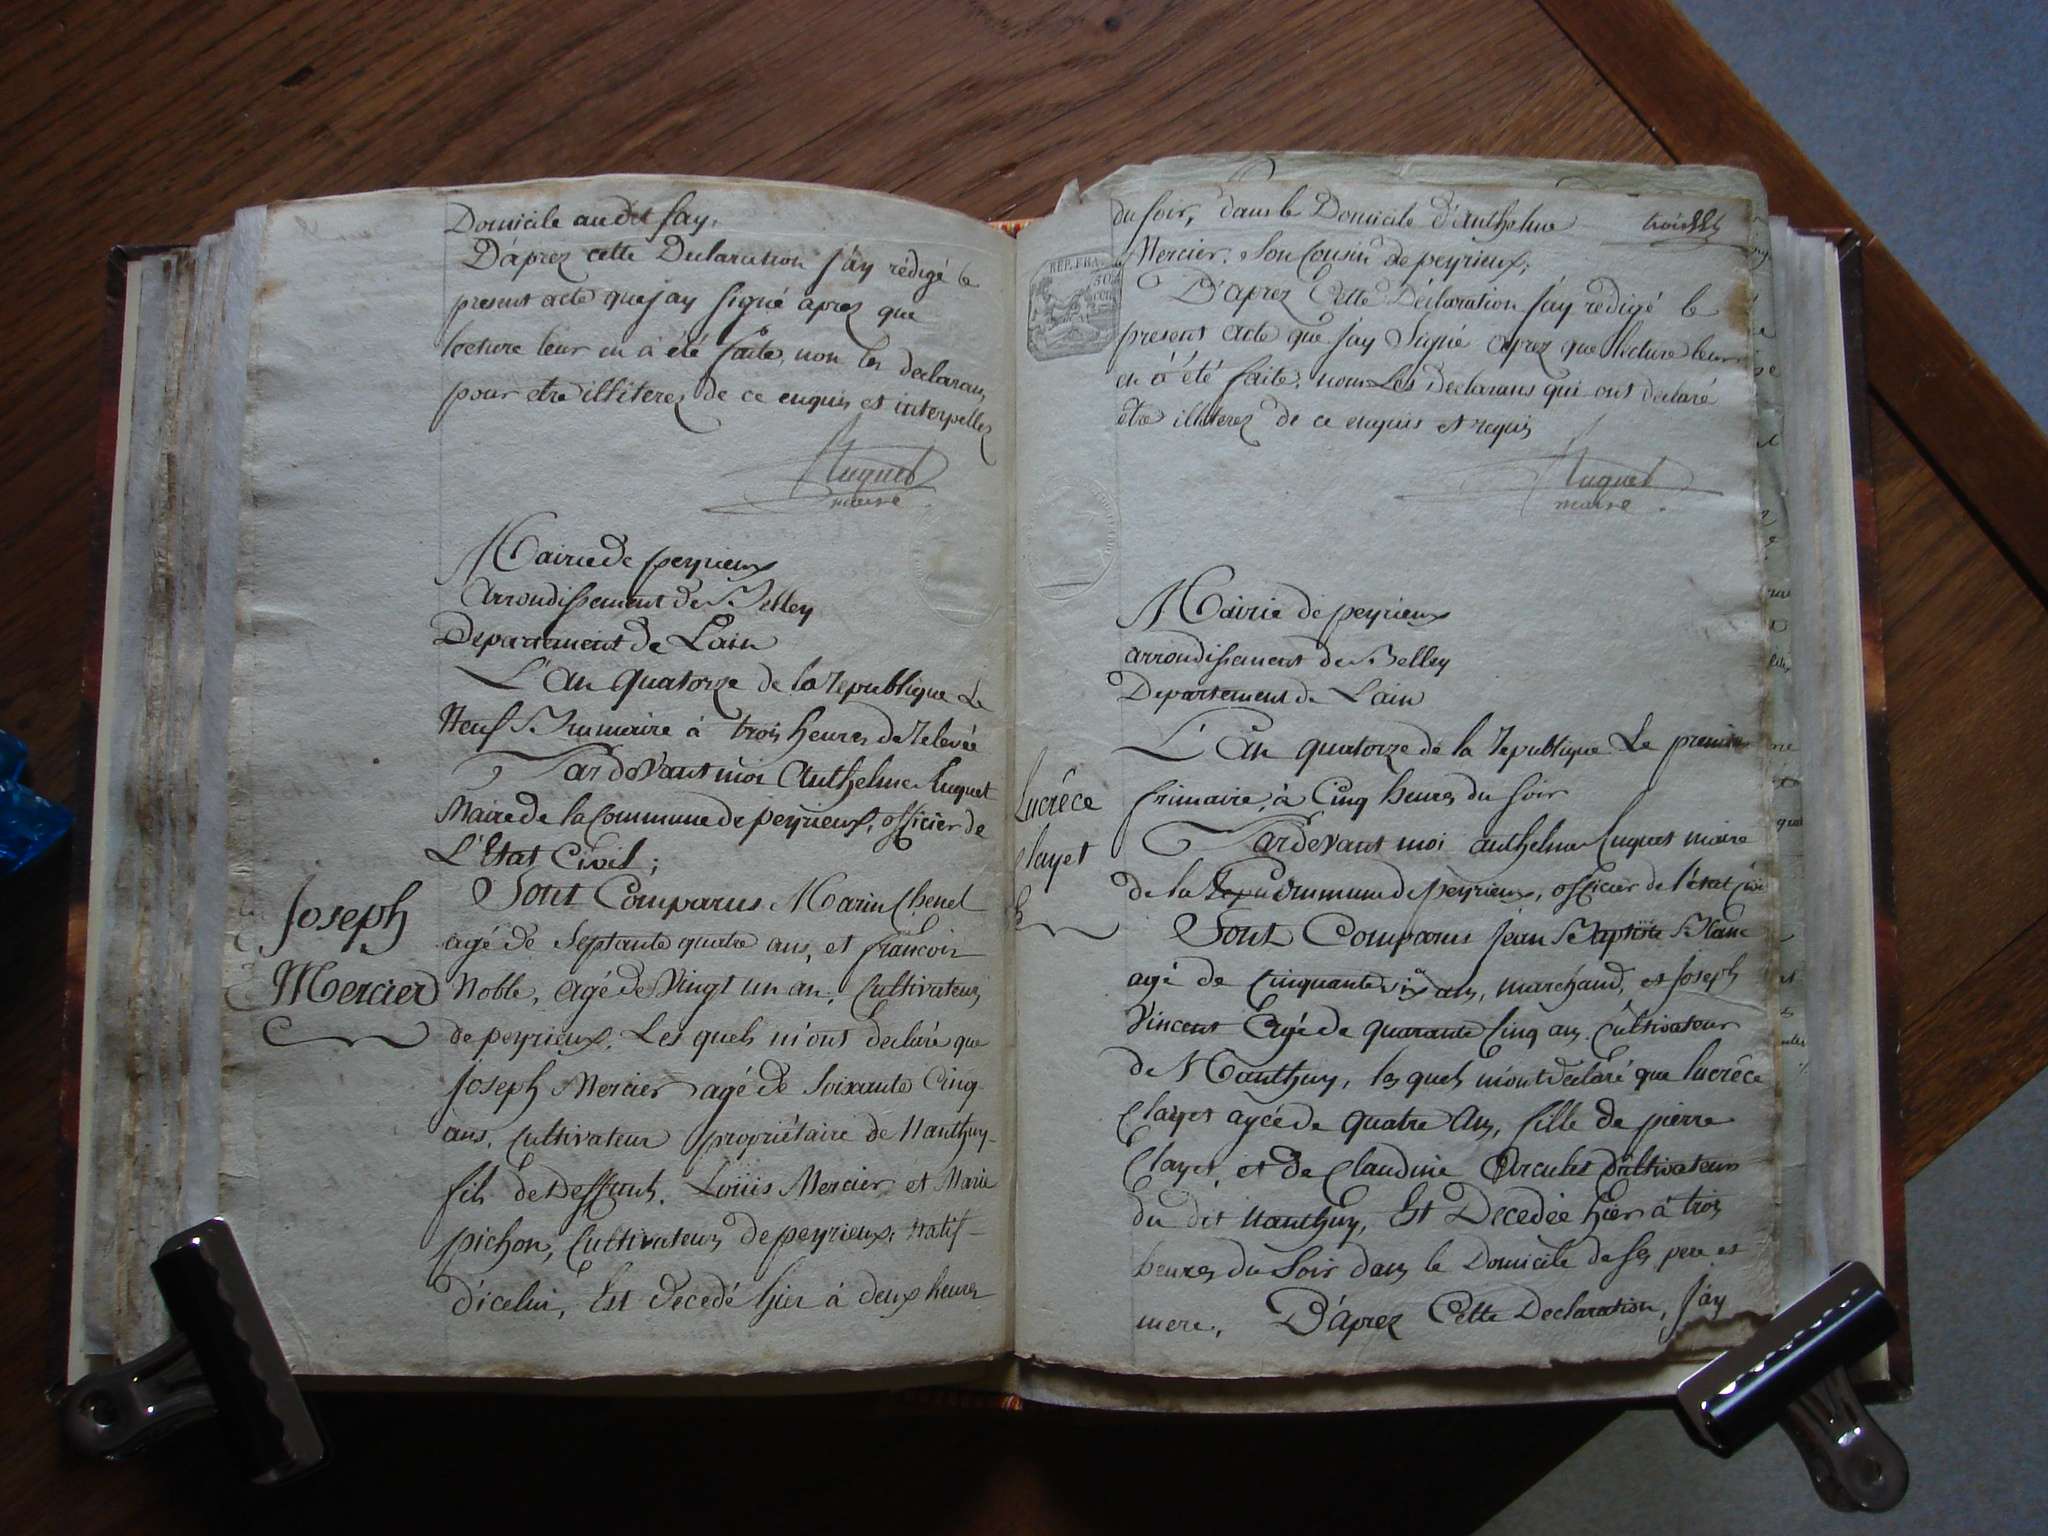 Domicile audit fay,
D'aprez cette Declaration j'ay rédigé le
present acte que j'ay signé aprez que
lecture leur en à été faite, non les declarans
pour etre illiterez de ce enquis et interpellez
Luquet
maire
Mairie de peyrieux
Arrondissement de Belley
Departement de Lain
L'An quatorze de la republique Le
Neuf Brumaire à trois heures de relevée
Pardevant moi Anthelme Luquet
Maire de la Commune de peyrieux, officier de
L'Etat Civil;
Sont Comparus Marin Chenel
agé de Septante quatre ans, et francois
Noble, agé de Vingt un an, Cultivateurs
de peyrieux. Les quels m'ont declaré que
Joseph Mercier agé de Soixante Cinq
ans, Cultivateur propriétaire de Nanthuy
fils de Deffunts Louis Mercier et Marie
pichon, Cultivateurs de peyrieux, natif
d'icelui, Est decedé hier à deux heures
Joseph
Mercier
du soir, dans le Domicile d'Anthelme
Mercier, son Cousin de peyrieux;
REP. FRA.
50
CEN
D'aprez Cette Déclaration j'ay redigé le
present acte que j'ay Signé aprez que lecture leur
en à été faite, non Les Declarans qui ont declaré
etre illiterez de ce enquis et requis
Luquet
maire
Mairie de peyrieux
arrondissement de Belley
Departement de Lain
L'An quatorze de la republique Le premier
frimaire, à Cinq heures du soir
Pardevant moi anthelme Luquet maire
de la Commune de peyrieux, officier de l'état civi
Sont Comparus Jean Baptiste Blanc
agé de Cinquante six ans, marchand, et Joseph
Vincent Agé de quarante Cinq ans, Cultivateur
de Nanthuy, les quels m'ont declaré que lucrêce
Clayet agée de quatre Ans, fille de pierre
Clayet, et de Claudine Cultivateurs
du dit Nanthuy, Est Decedée hier à trois
heures du Soir dans le Domicile de ses pere et
mere, D'aprez Cette Declaration, j'ay
Lucrêce
Clayet